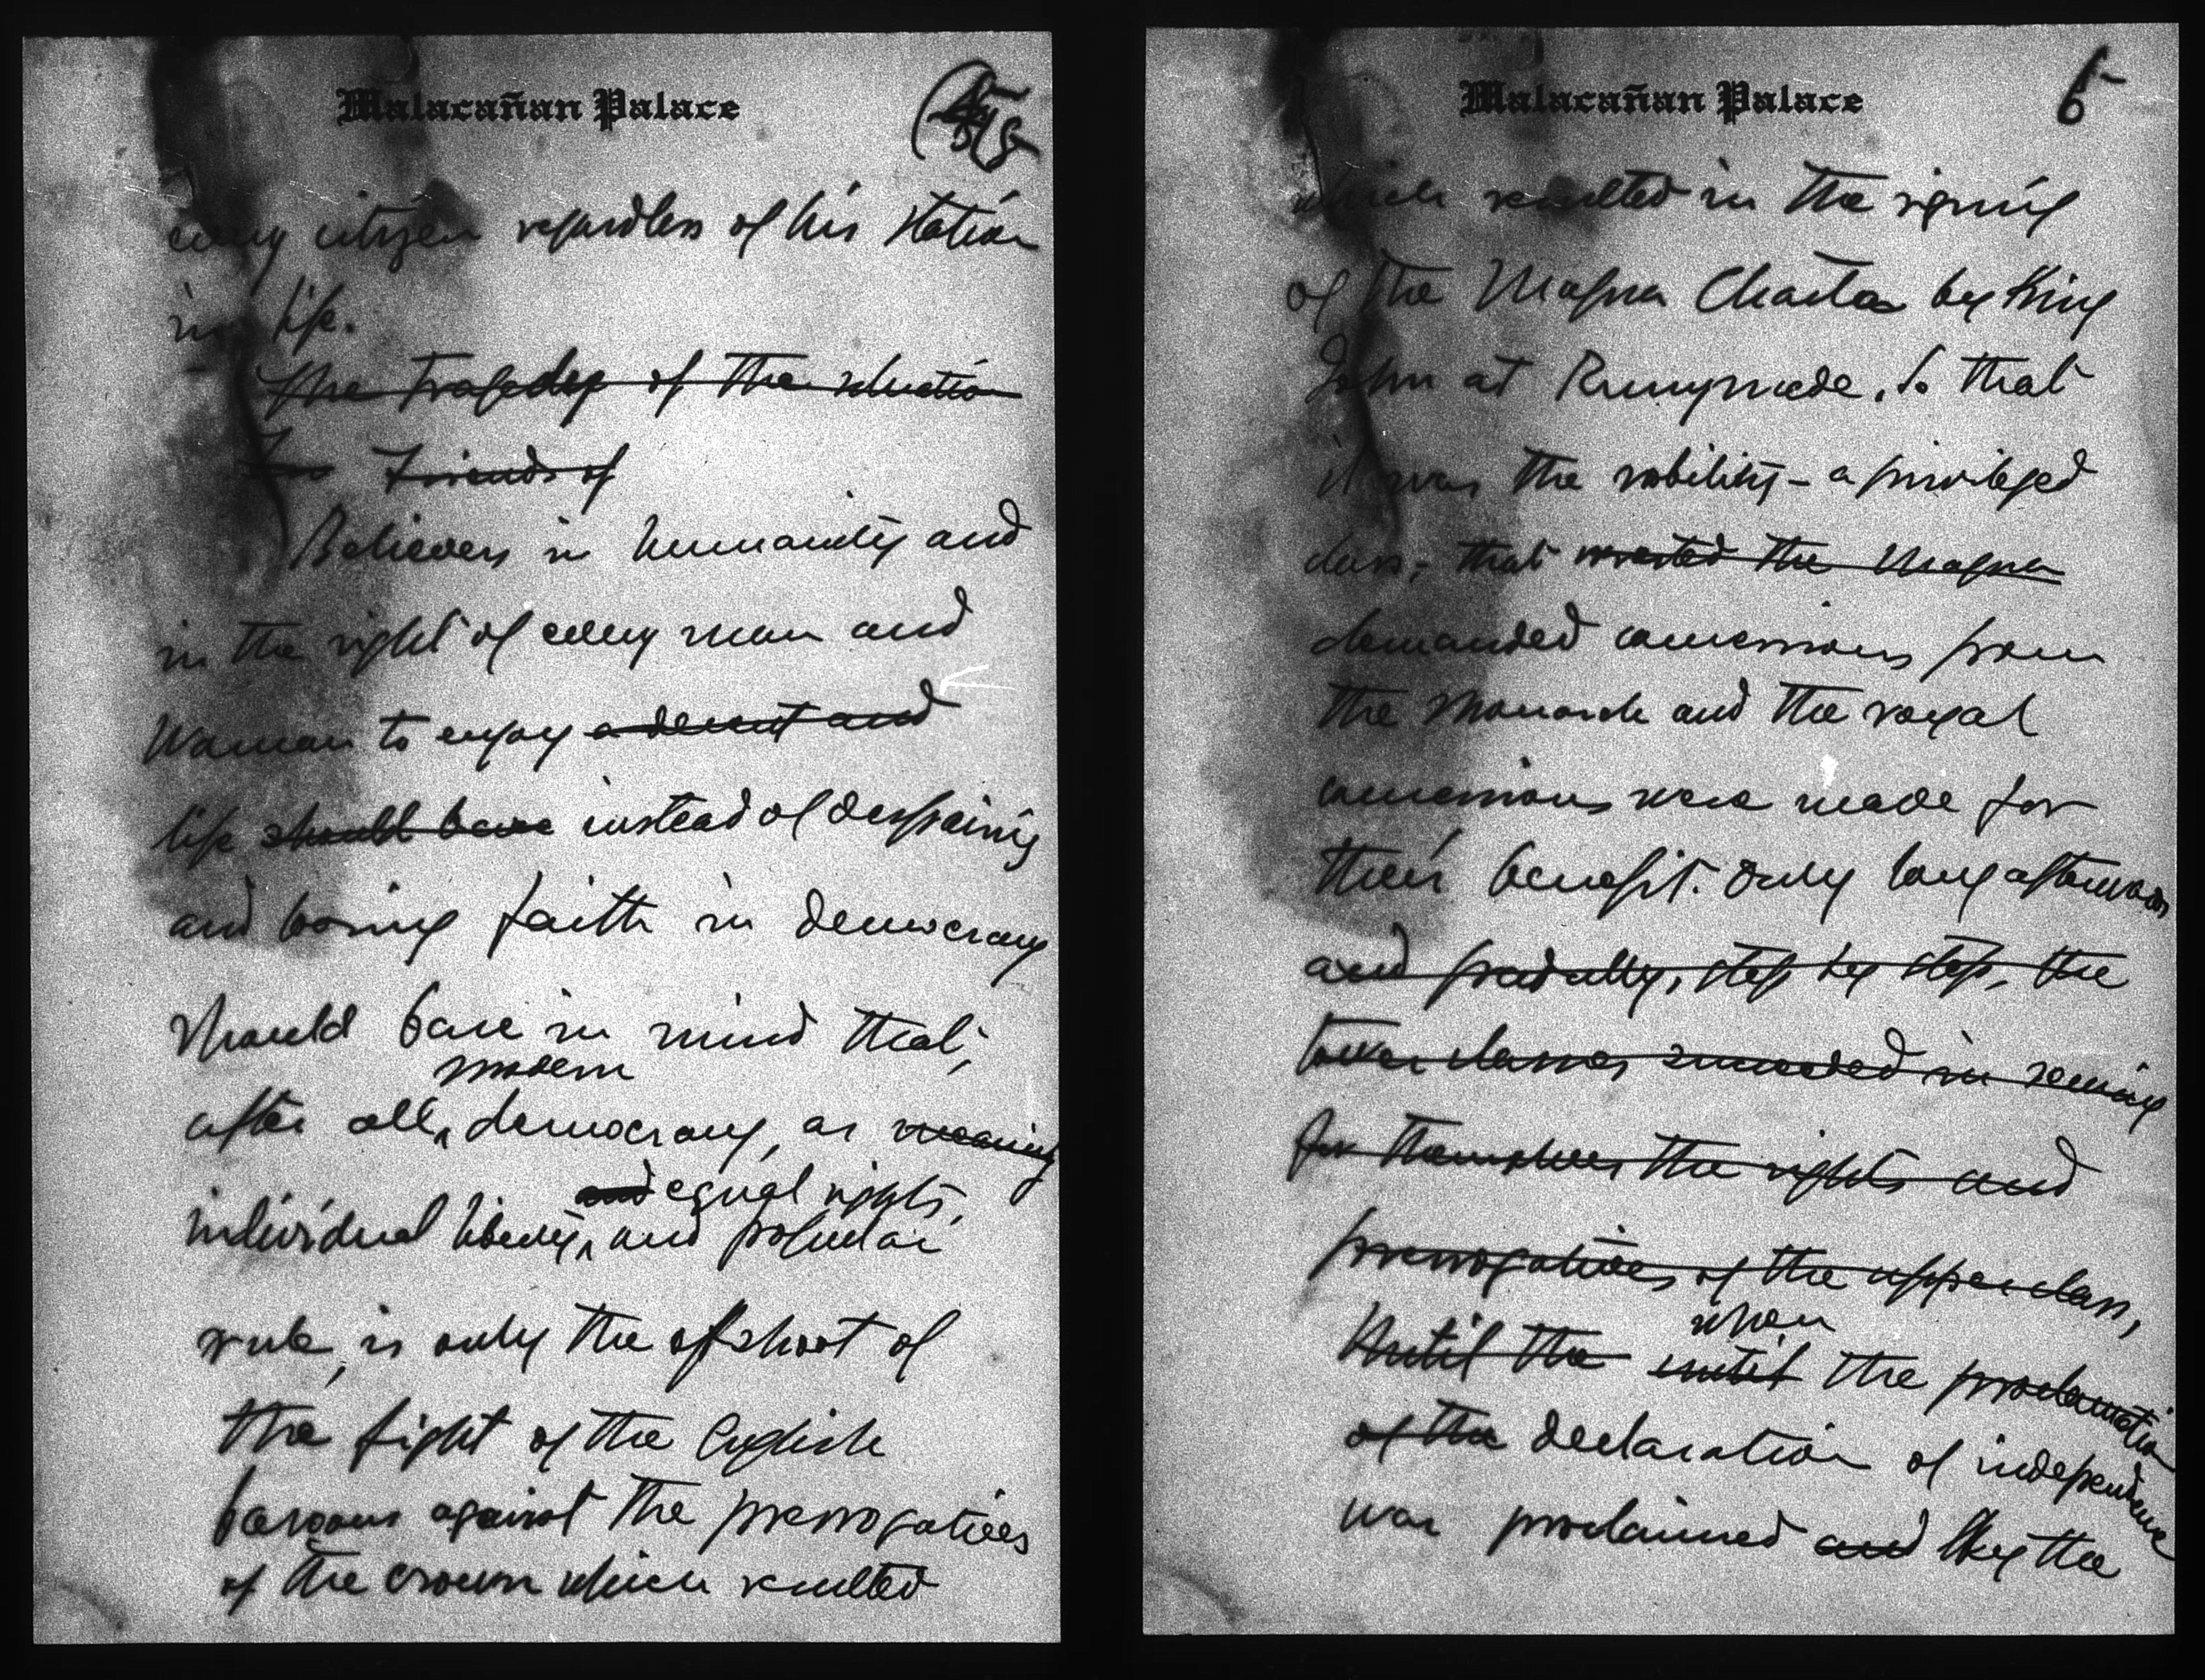 Malacañan Palace
every citizen regardless of his station
in life.
The tragedy of the situation
For Friends of
Believers in humanity and
in the right of every man and
woman to enjoy a decent and
life should have instead of despairing
and losing faith in democracy
should bare in mind that,
modern
after all, democracy, as meaning
and equal rights,
individual liberty, and popular
rule, is only the ofshoot of
the fight of the English
barons against the prerrogatives
of the crown which resulted
Malacañan Palace
6
which resulted in the signing
of the Magna Charta by King
John at Runnymede. So that
it was the nobility - a privileged
class, that wrested the Magna
demanded concessions from
the monarch and the royal
concessions were made for
their benefit. Only long afterwards
and gradually, step by step, the
lower classes succeeded in securing
for themselves the rights and
prerrogatives of the upper class,
when
Until the until the proclamation
of the declaration of independence
was proclaimed and by the